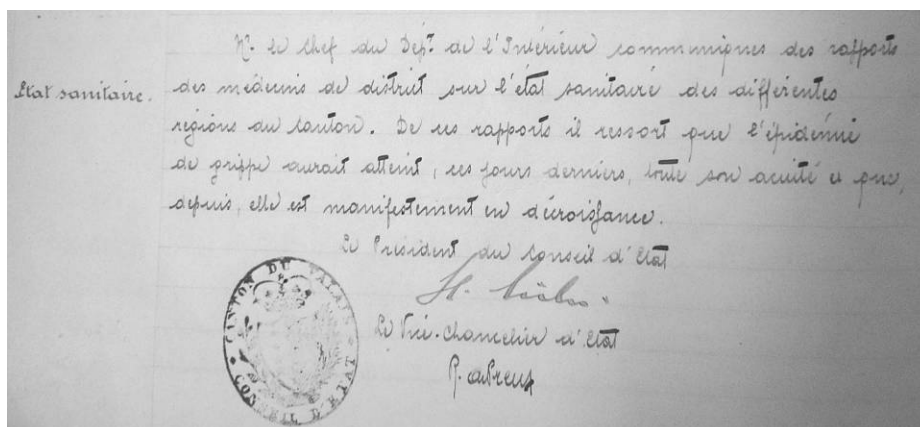 Mr le Chef du Dépt de l'Intérieur communique des rapports
Etat sanitaire.
des médecins de district sur l'état sanitaire des différentes
régions du canton. De ces rapports il ressort que l'épidémie
de grippe aurait atteint, ces jours derniers, toute son acuité et que,
depuis, elle est manifestement en décroissance.
Le Président du Conseil d'Etat
Le Vice-Chancelier d'Etat
R. de Preux
CANTON DU VALAIS
CONSEIL D'ETAT